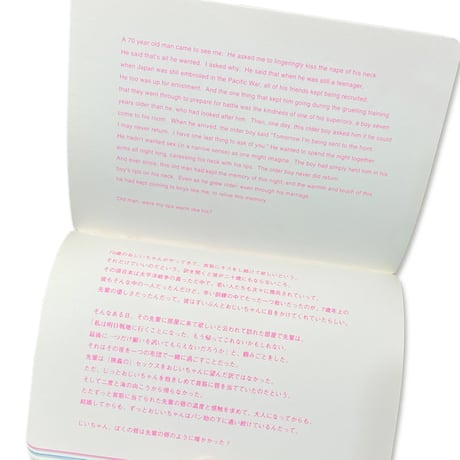 A 70 year old man came to see me. He asked me to lingeringly kiss the nape of his neck
He said that's all he wanted. I asked why. He said that when he was still a teenager,
when Japan was still embroiled in the Pacific War, all of his friends kept being recruited.
He too was up for enlistment. And the one thing that kept him going during the grueling training
that they went through to prepare for battle was the kindness of one of his superiors, a boy seven
years older than he, who had looked after him. Then, one day, this older boy asked him if he could
come to his room. When he arrived, the older boy said "Tomorrow I'm being sent to the front.
I may never return. I have one last thing to ask of you." He wanted to spend the night together
He hadn't wanted sex (in a narrow sense) as one might imagine. The boy had simply held him in his
arms all night long, caressing his neck with his lips. The older boy never did return.
And ever since, this old man had kept the memory of this night, and the warmth and touch of this
boy's lips on his neck. Even as he grew older, even through his marriage
he had kept coming to boys like me, to relive this memory.
Old man, were my lips warm like his?
70歳のおじいちゃんがやってきて、首筋にキスをし続けて欲しいという。
それだけでいいのだという。訳を聞くと彼が二十歳にもならないころ、
その頃日本は太平洋戦争の真っただ中で、若い人たちも次々に徴兵されていって、
彼もそんな中の一人だったんだけど、辛い訓練の中でたった一つ救いだったのが、7歳年上の
先輩の優しさだったんだって。彼はずいぶんとおじいちゃんに目をかけてくれていたらしい。
そんなある日、その先輩に部屋に来て欲しいと云われて訪れた部屋で先輩は、
「私は明日戦地に行くことになった。もう帰ってこれないかもしれない
最後に一つだけ願いを訊いてもらえないだろうか」と、頼みごとをした。
それはその夜を一つの布団で一緒に過ごすことだった。
先輩は「狭義の」セックスをおじいちゃんに望んだ訳ではなかった。
ただ、じっとおじいちゃんを抱きしめて首筋に唇を当てていたのだという。
そして二度と海の向こうから帰らなかった。
たたずっと首筋に当てられた先輩の唇の温度と感触を求めて、大人になってからも、
結婚してからも、ずっとおじいちゃんはパン助の下に通い続けているんだって。
じいちゃん、ぼくの唇は先輩の唇のように暖かかった？